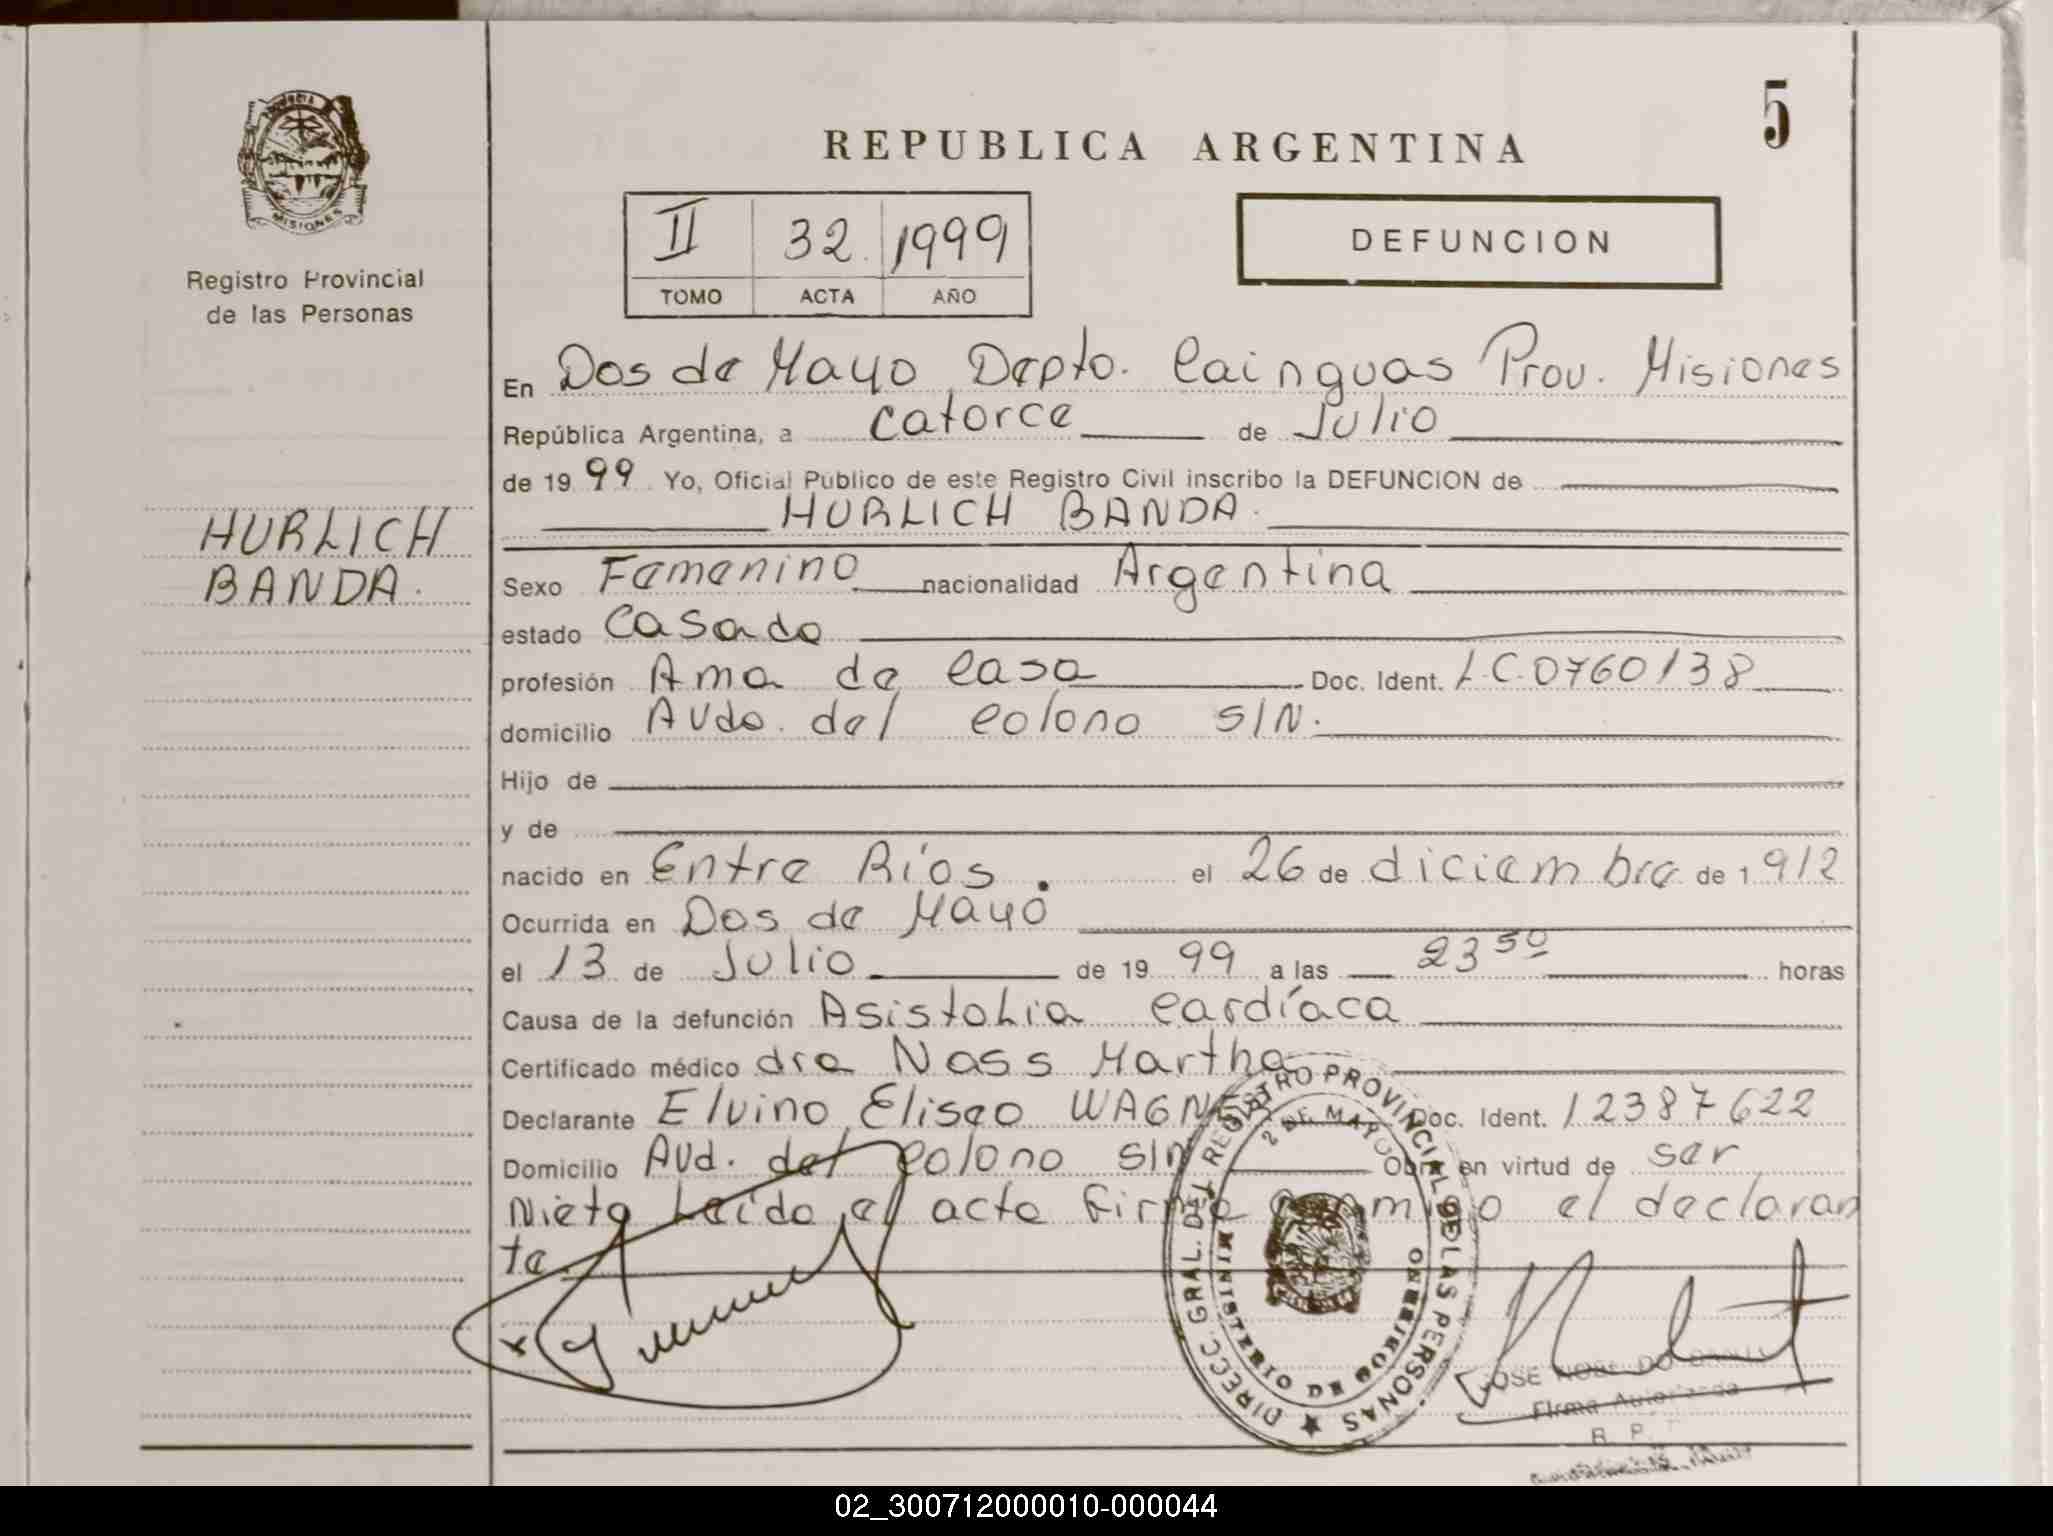 5
REPUBLICA ARGENTINA
MISIONES
Registro Provincial
de las Personas
II 32. 1999
TOMO ACTA AÑO
DEFUNCION
HURLICH
BANDA.
En Dos de Mayo Depto. Cainguas Prov. Misiones
República Argentina, a catorce de Julio
de 1999 Yo, Oficial Público de este Registro Civil inscribo la DEFUNCION de
HURLICH BANDA.
Sexo Femenino nacionalidad Argentina
estado Casado
profesión Ama de Casa Doc. Ident. L.C.0760138
domicilio Avda. del Colono S/N.
Hijo de
y de
nacido en Entre Ríos. el 26 de diciembre de 1912
Ocurrida en Dos de Mayo
el 13 de Julio de 1999 a las 23 50 horas
Causa de la defunción Asistolia Cardíaca
Certificado médico dra Nass Martha
Declarante Elvino Eliseo WAGNER Doc. Ident. 12387622
Domicilio Avd. del Colono S/N Obra en virtud de ser
Nieto Leído el acta firma conmigo el declaran
te.
DIRECC. GRAL. DEL REGISTRO PROVINCIAL DE LAS PERSONAS
2 DE MAYO
MINISTERIO DE GOBIERNO
JOSE
Firma Autorizada
R. P.
02_300712000010-000044